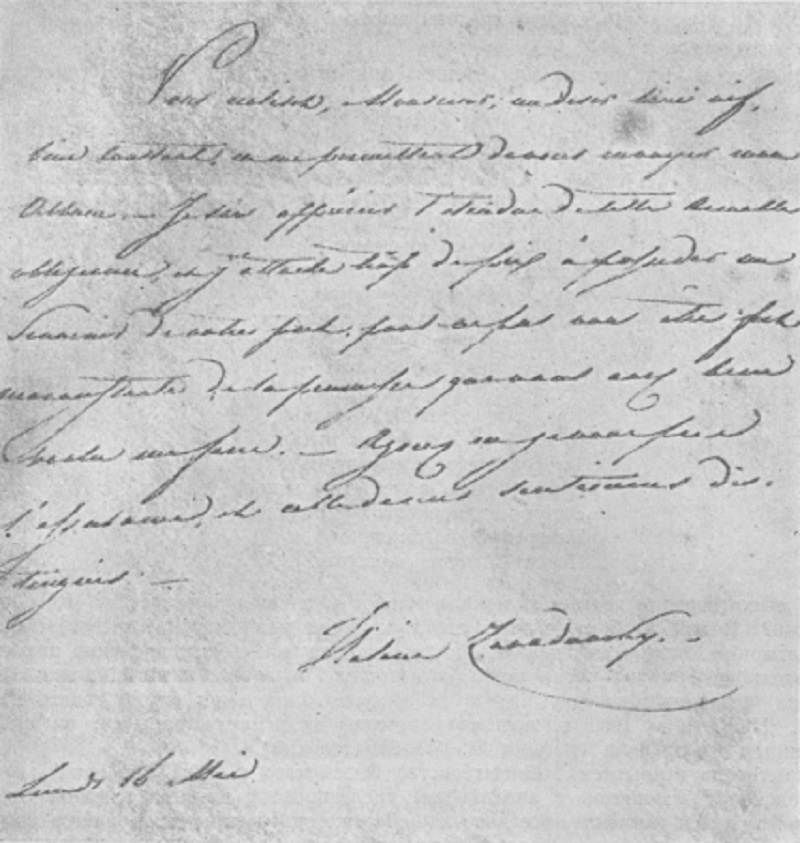 Vous realisez, Monsieur, un desir bien vif,
bien constant, en me permettant de vous envoyer mon
Album. — Je sais apprécier l'étendue de cette nouvelle
obligeance, et j'attache trop de prix à posseder un
Souvenir de votre part, pour ne pas vous être
reconnaissante de la promesse que vous avez bien
voulu me faire. — Agréez en je vous prie
l'assurance, et celle de mes sentiments dis-
tingués. —
Zavadovsky. —
Lundi 16 Mai